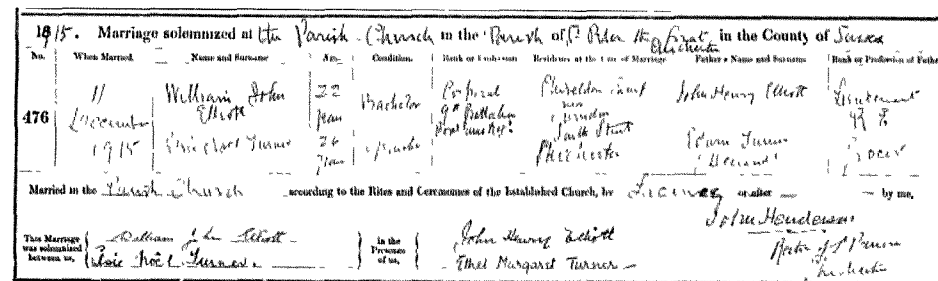 1915. Marriage solemnized at the Parish Church in the Parish of St Peter the Great Chichester in the County of Sussex
No. When Married. Name and Surname Age. Condition. Rank or Profession Residence at the time of Marriage Father's Name and Surname Rank or Profession of Father
476 11 December 1915 William John Elliott 22 years Bachelor Corporal 9th Battalion John Henry Elliott Lieutenant
Turner 26 years Spinster South Street Chichester Edwin Turner Grocer
Married in the Parish Church according to the Rites and Ceremonies of the Established Church, by Licence or after by me,
John Henderson
This Marriage was solemnized between us, William John Elliott in the Presence of us, John Henry Elliott Rector of
Noël Turner. Ethel Margaret Turner